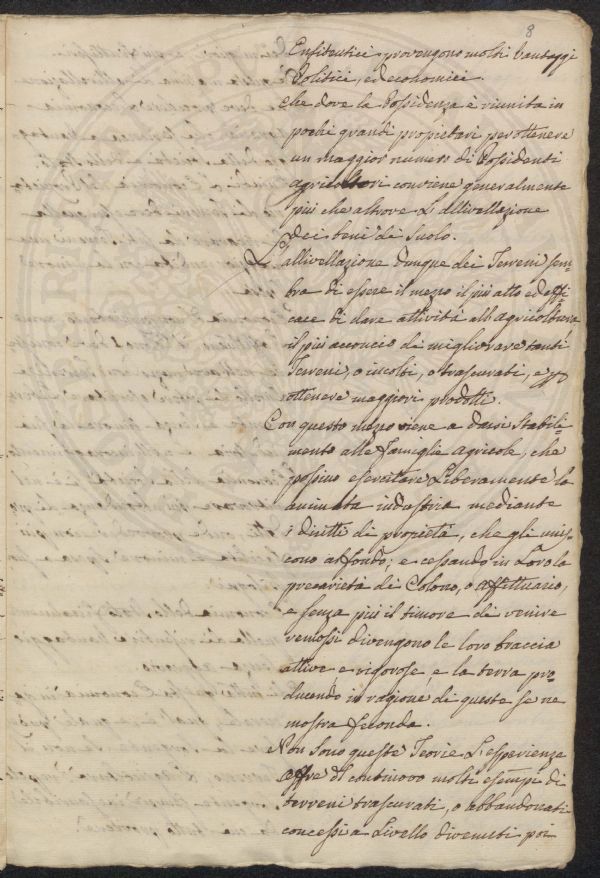 8
Enfiteutici provengono molti Vantaggi
Politici, ed economici
che dove la Possidenza è riunita in
pochi grandi propietarj per ottenere
un maggior numero di Possidenti
agricoltori conviene generalmente
più che altrove L'allivellazione
dei beni di Suolo.
L'allivellazione dunque dei Terreni sem-
bra di essere il mezzo il più atto ed effi-
cace di dare attività all'agricoltura
il più acconcio di migliorare tanti
Terreni, o incolti, o trascurati, e p
ottenere maggiori prodotti.
Con questo mezzo viene a darsi Stabili-
mento alle Famiglie agricole, che
possino esercitare Liberamente la
animata industria mediante
i diritti di proprietà, che gli unis-
cono al fondo; e cessando in Loro la
precarietà di Colono, o affittuario,
e senza più il timore di venire
remossi divengono le loro braccia
attive e rigorose, e la terra pro-
ducendo in ragione di queste se ne
mostra feconda.
Non sono queste Teorie L'esperienza
offre di continovo molti esempi di
terreni trascurati, o abbandonati
concessi a Livello divenuti poi